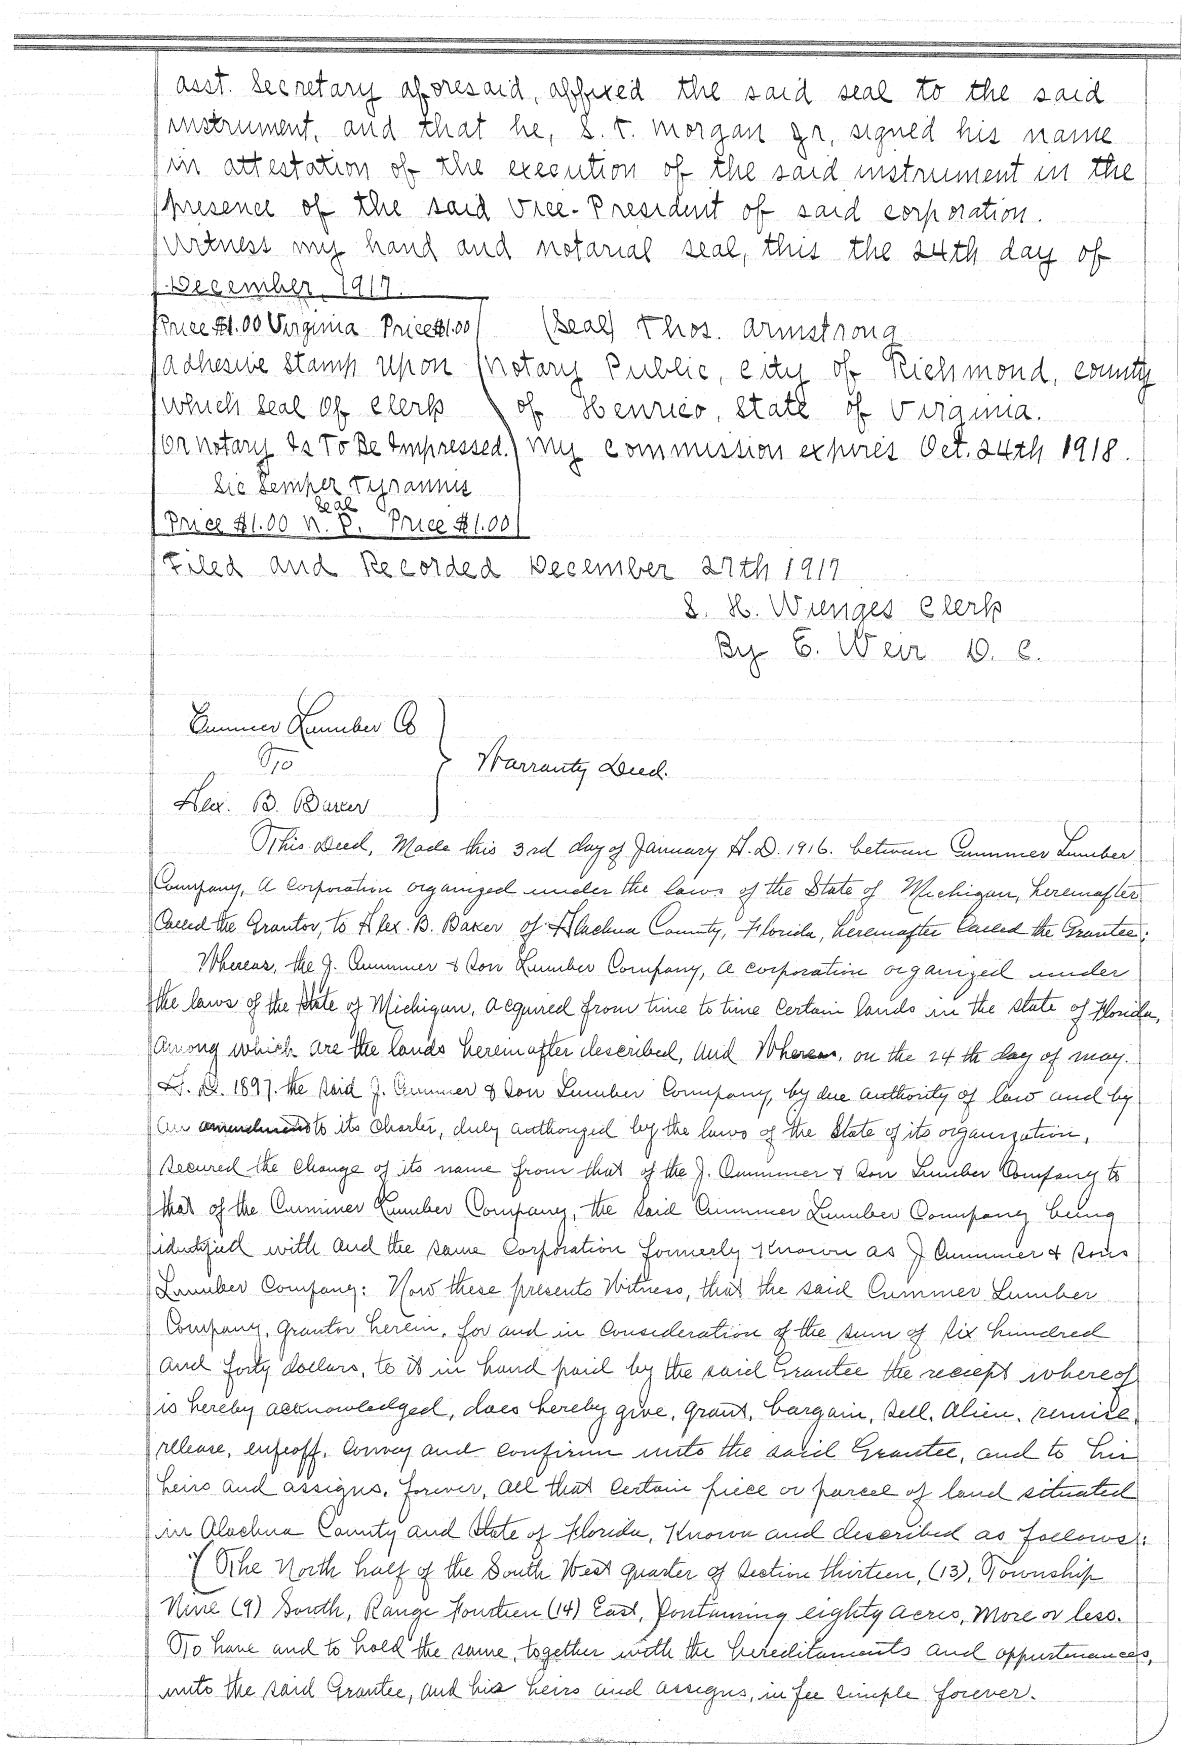 asst. Secretary aforesaid, affixed the said seal to the said
instrument, and that he, S. T. Morgan Jr, signed his name
in attestation of the execution of the said instrument in the
presence of the said Vice-President of said corporation.
Witness my hand and notarial seal, this the 24th day of
December, 1917.
Price $1.00 Virginia Price $1.00
Adhesive Stamp Upon
which Seal Of Clerk
Or Notary Is To Be Impressed.
Sic Semper Tyrannis
Seal
Price $1.00 N. P. Price $1.00
(Seal) Thos. Armstrong
Notary Public, City of Richmond, County
of Henrico, State of Virginia.
My commission expires Oct. 24th 1918.
Filed and Recorded December 27th 1917
S. H. Wienges Clerk
By E. Weir D. C.
Cummer Lumber Co
To
Alex. B. Baker
Warranty Deed.
This Deed, Made this 3rd day of January A.D. 1916. between Cummer Lumber
Company, a corporation organized under the laws of the State of Michigan, hereinafter
called the Grantor, to Alex. B. Baker of Alachua County, Florida, hereinafter called the Grantee:
Whereas, the J. Cummer & Son Lumber Company, a corporation organized under
the laws of the State of Michigan, acquired from time to time certain lands in the state of Florida,
among which are the lands hereinafter described, and Whereas, on the 24th day of may.
A. D. 1897. the said J. Cummer & Son Lumber Company, by due authority of law and by
an amendment to its Charter, duly authorized by the laws of the State of its organization,
secured the change of its name from that of the J. Cummer & Son Lumber Company to
that of the Cummer Lumber Company, the said Cummer Lumber Company being
identified with and the same Corporation formerly known as J Cummer & Sons
Lumber Company: Now these presents Witness, that the said Cummer Lumber
Company, grantor herein, for and in consideration of the sum of six hundred
and forty dollars, to it in hand paid by the said Grantee the reciept whereof
is hereby acknowledged, does hereby give, grant, bargain, sell, alien, remise,
release, enfeoff, convey and confirm unto the said Grantee, and to his
heirs and assigns, forever, all that certain piece or parcel of land situated
in Alachua County and State of Florida, known and described as follows:
(The North half of the South West quarter of Section thirteen, (13), Township
Nine (9) South, Range Fourteen (14) East,) containing eighty acres, more or less.
To have and to hold the same, together with the hereditaments and appurtenances,
unto the said Grantee, and his heirs and assigns, in fee simple forever.